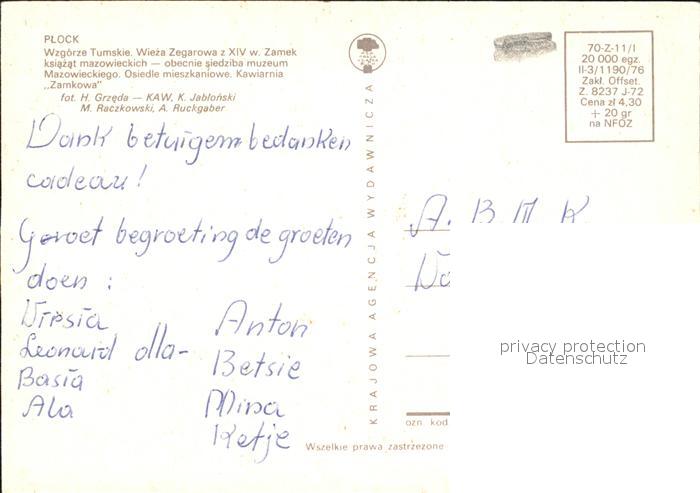 PŁOCK
Wzgórze Tumskie. Wieża Zegarowa z XIV w. Zamek
książąt mazowieckich — obecnie siedziba muzeum
Mazowieckiego. Osiedle mieszkaniowe. Kawiarnia
„Zamkowa”
fot. H. Grzęda — KAW, K. Jabłoński
M. Raczkowski, A. Ruckgaber
70-Z-11/I
20 000 egz.
II-3/1190/76
Zakł. Offset.
Z. 8237 J-72
Cena zł 4,30
+ 20 gr
na NFOZ
KRAJOWA AGENCJA WYDAWNICZA
Dank betuigem bedanken
cadeau!
Geroet begroeting de groeten
doen :
Uršia
Leonard dla-
Basia
Ala
Anton
Betsie
Mina
Ketje
A. B M K
privacy protection
Datenschutz
ozn. kod.
Wszelkie prawa zastrzeżone